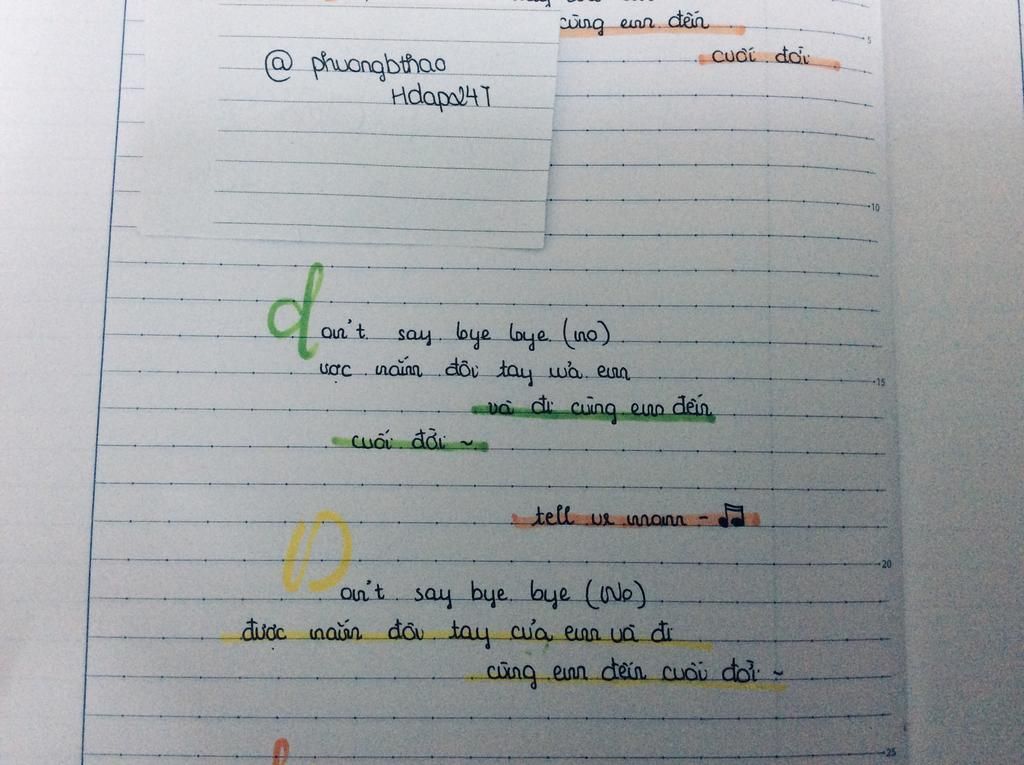 cũng em đến
cuối đời
@ phuongbthao
Hdapo24T
5
10
don't say bye bye (no)
ược nắm đôi tay của em
và đi cùng em đến
cuối đời ~
15
tell ur mom - ♫
20
Don't say bye bye (No)
được nắm đôi tay của em và đi
cũng em đến cuối đời ~
25